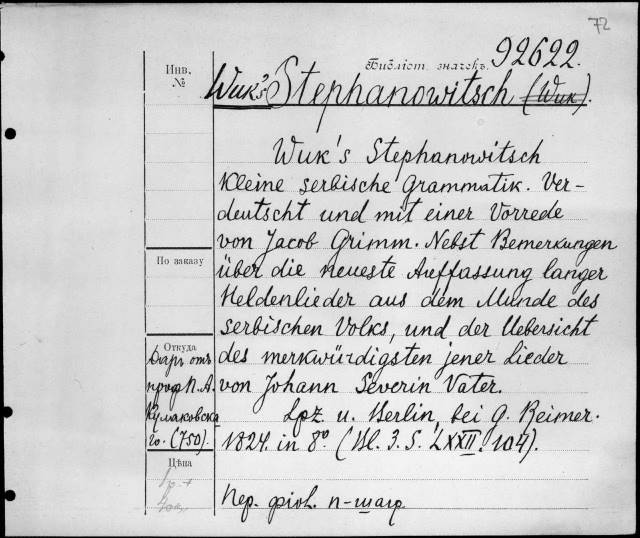 72
Библіот. значекъ. 92622.
Инв.
№
Wuk's Stephanowitsch (Wuk).
Wuk's Stephanowitsch
kleine serbische Grammatik. Ver-
deutscht und mit einer Vorrede
von Jacob Grimm. Nebst Bemerkungen
über die neueste Auffassung langer
Heldenlieder aus dem Munde des
serbischen Volks, und der Uebersicht
des merkwürdigsten jener Lieder
von Johann Severin Vater.
Lpz. u. Berlin, bei G. Reimer.
1824. in 8º. (Bl. 3. S. LXXII. 104).
По заказу
Откуда
Даръ отъ
проф. П. А.
Кулаковска
го. (750).
Цѣна
Пер.